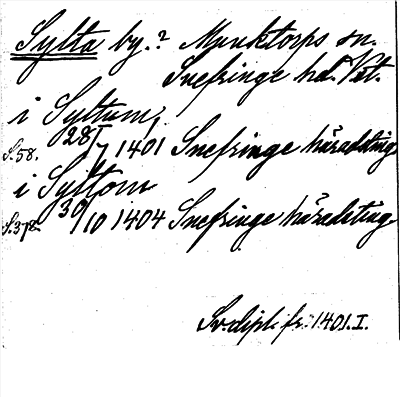 Sylta by.? Munktorps sn.
Snefringe hd. Vstm.
i Syltum,
S. 58. 28/7 1401 Snefringe häradsting
i Syltom
S. 378. 30/10 1404 Snefringe häradsting
Sv. dipl. fr. 1401. I.